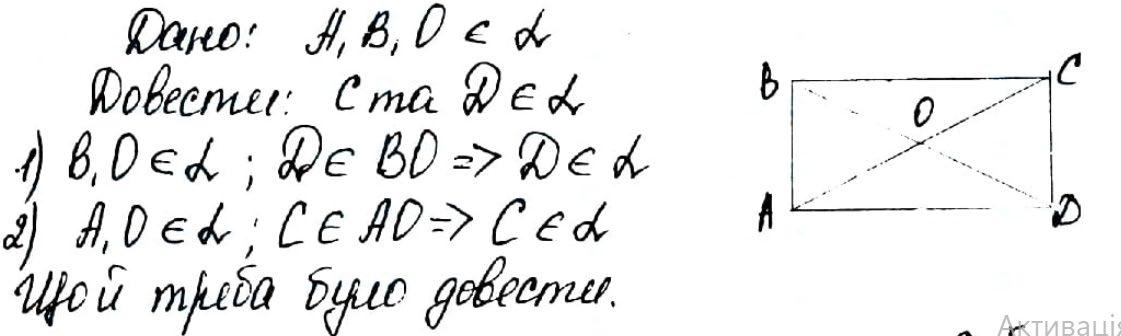 Дано: A, B, O ∈ α
Довести: C та D ∈ α
1) B, O ∈ α ; D ∈ BO => D ∈ α
2) A, O ∈ α ; C ∈ AO => C ∈ α
Що й треба було довести.
B
C
O
A
D
Активація